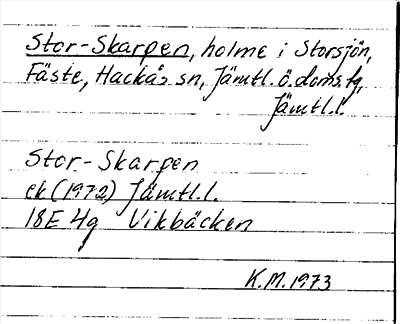 Stor-Skarpen, holme i Storsjön,
Fäste, Hackås sn, Jämtl.ö.doms.tg,
Jämtl.l.
Stor-Skarpen
ek (1972) Jämtl.l.
18E 4g Vikbäcken
K.M. 1973